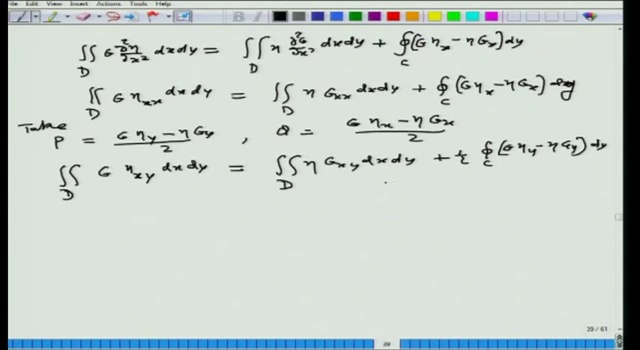 File Edit View Insert Actions Tools Help
∬_D G ∂²η/∂x² dxdy = ∬_D η ∂²G/∂x² dxdy + ∮_C (G η_x − η G_x) dy
∬_D G η_xx dxdy = ∬_D η G_xx dxdy + ∮_C (G η_x − η G_x) dy
Take P = (G η_y − η G_y)/2 , Q = (G η_x − η G_x)/2
∬_D G η_xy dxdy = ∬_D η G_xy dxdy + ½ ∮_C (G η_y − η G_y) dy
39